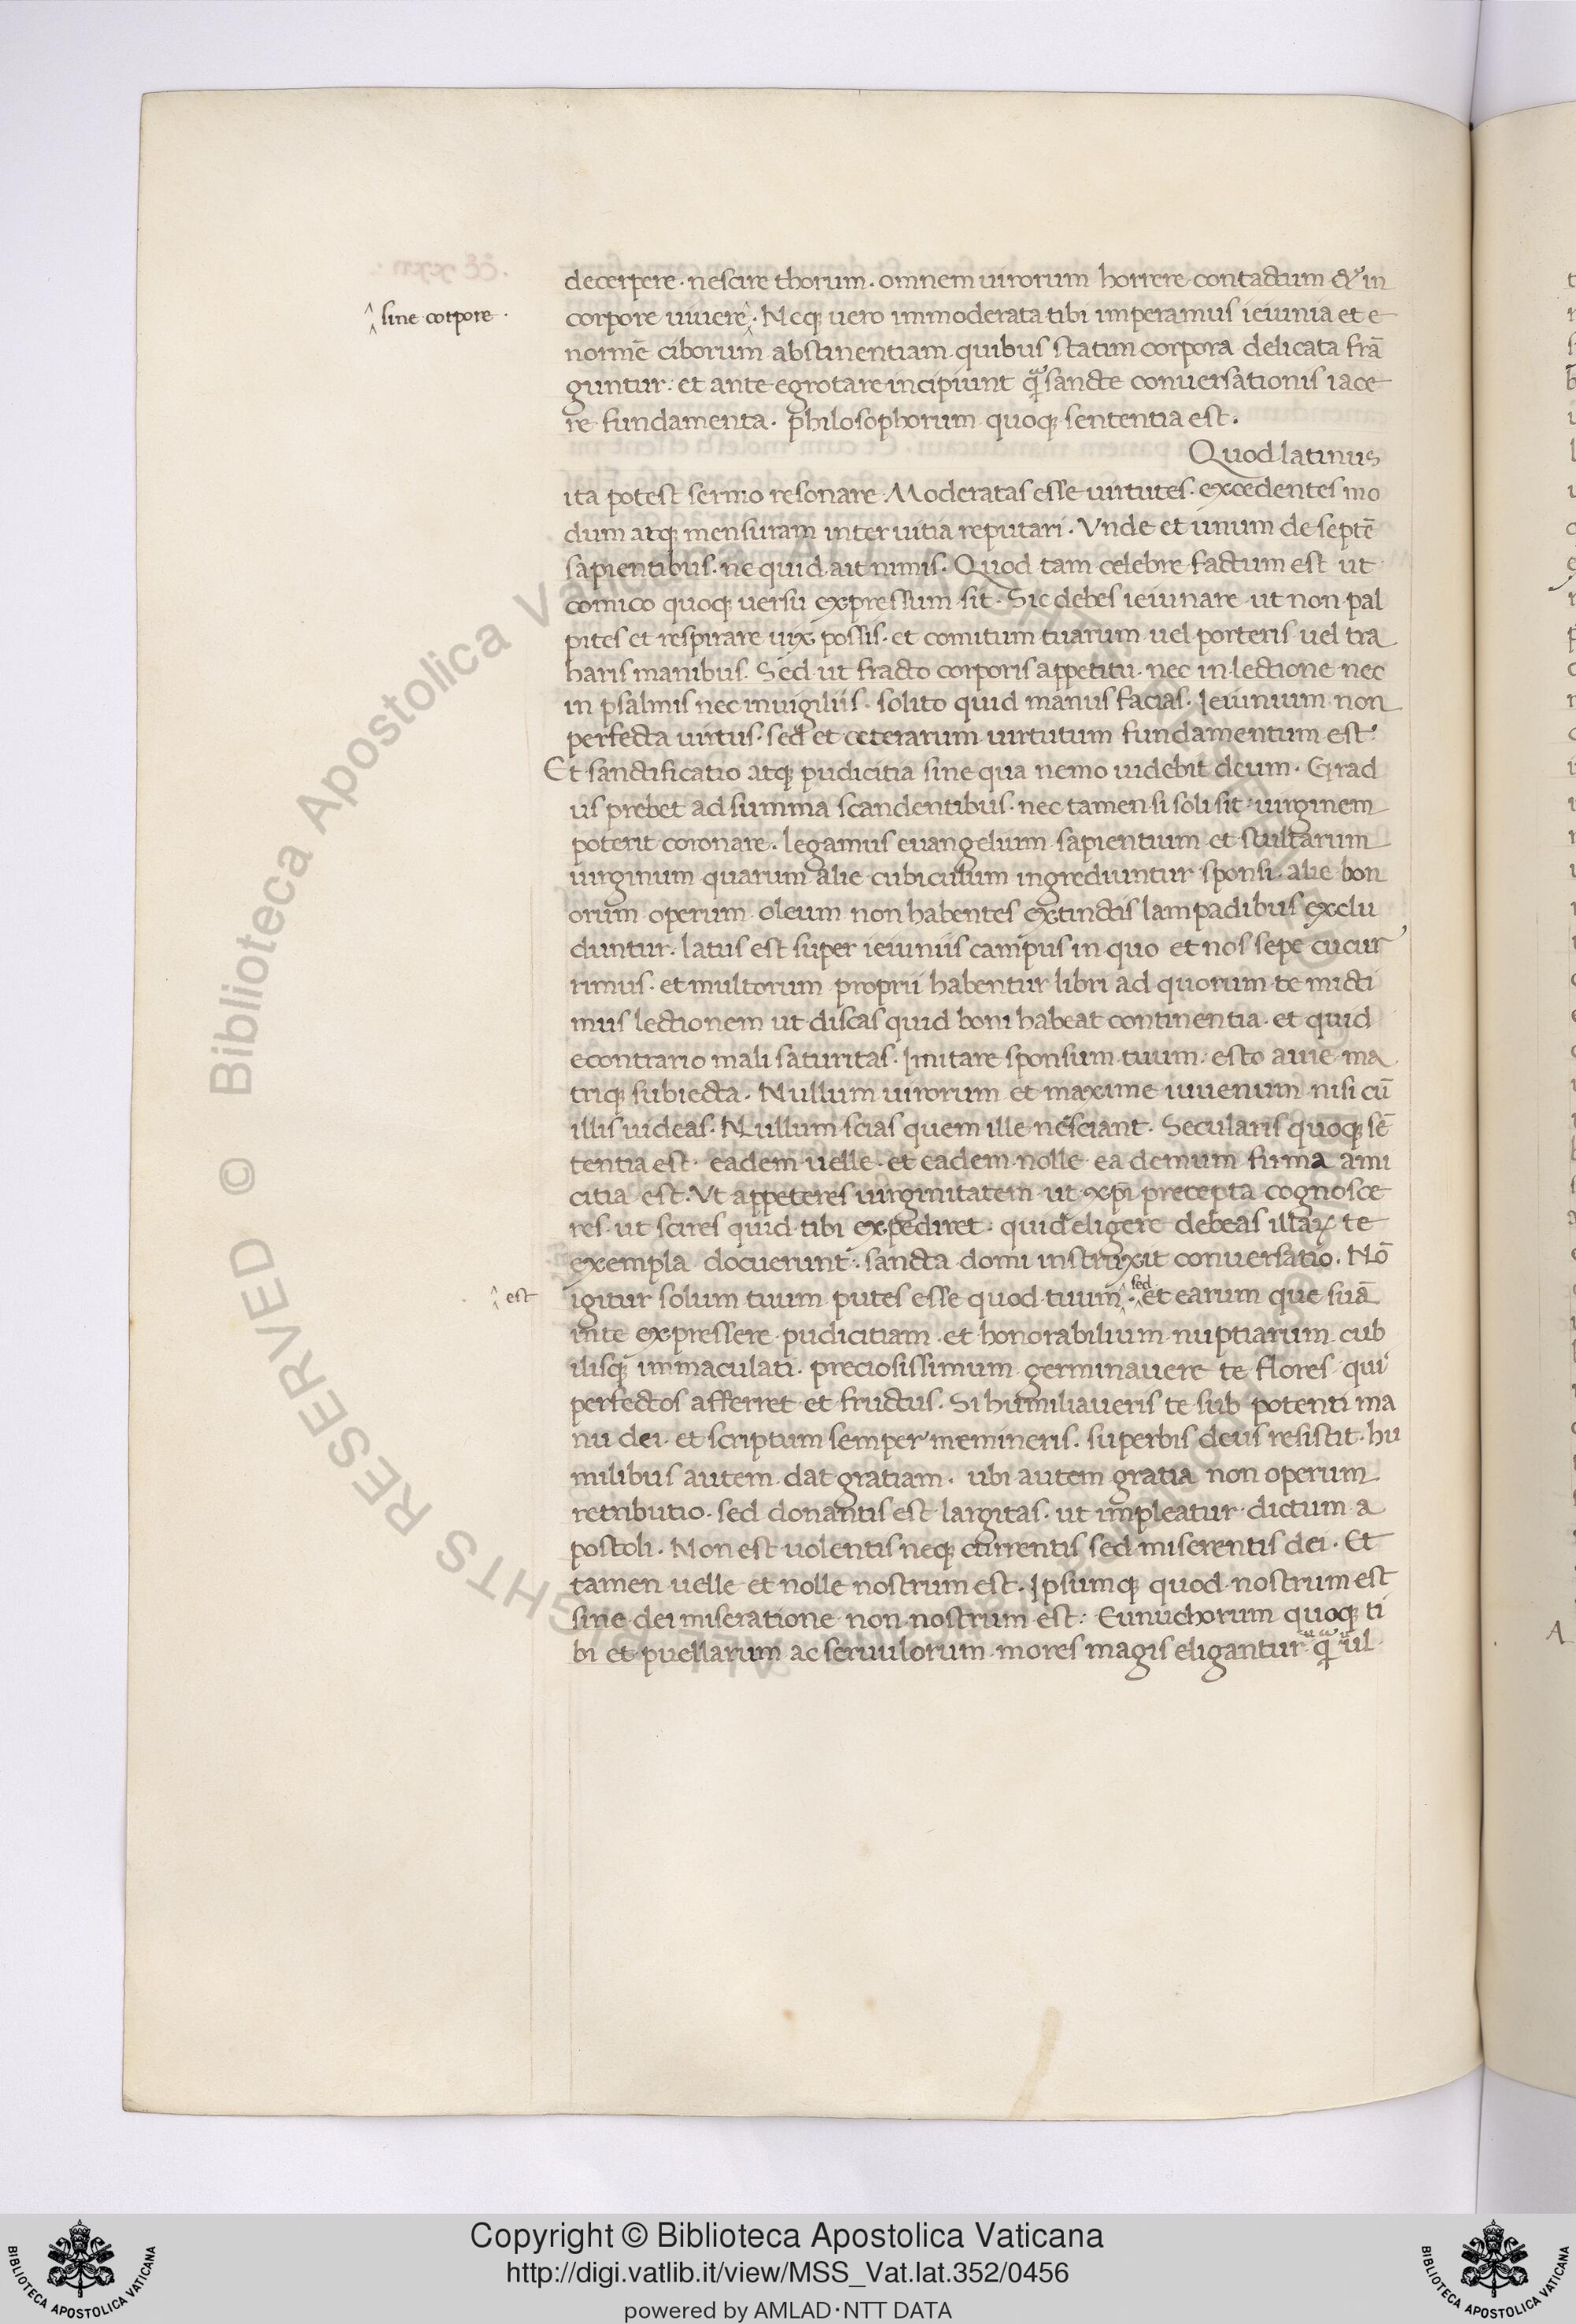 decerpere · nescire thorum · omnem uirorum horrere contactum & in
^ sine corpore ·
corpore uiuere ^ · Neq; uero immoderata tibi imperamus ieiunia et e
normē ciborum abstinentiam quibus statim corpora delicata frā
guntur · et ante egrotare incipiunt qᷓ sancte conuersationis iace
re fundamenta · philosophorum quoq; sententia est ·
Quod latinus
ita potest sermo resonare Moderatas esse uirtutes · excedentes mo
dum atq; mensuram inter uitia reputari · Vnde et unum de septē
sapientibus · ne quid ait nimis · Quod tam celebre factum est ut
comico quoq; uersu expressum sit · Sic debes ieiunare ut non pal
pites et respirare uix possis · et comitum tuarum uel porteris uel tra
haris manibus · Sed ut fracto corporis appetitu · nec in lectione nec
in psalmis nec in uigiliis · solito quid manus facias · Ieiunium non
perfecta uirtus · sed et ceterarum uirtutum fundamentum est ·
Et sanctificatio atq; pudicitia sine qua nemo uidebit deum · Grad
us prebet ad summa scandentibus · nec tamen si soli sit · uirginem
poterit coronare · legamus euangelium sapientium et stultarum
uirginum quarum alie cubiculum ingrediuntur sponsi · alie bon
orum operum oleum non habentes extinctis lampadibus exclu
duntur · latus est super ieiuniis campus in quo et nos sepe cucur
rimus · et multorum proprii habentur libri ad quorum te micti
mus lectionem ut discas quid boni habeat continentia · et quid
econtrario mali saturitas · Imitare sponsum tuum · esto auie ma
triq; subiecta · Nullum uirorum et maxime iuuenum nisi cū
illis uideas · Nullum scias quem ille nesciant · Secularis quoq; sē
tentia est · eadem uelle · et eadem nolle ea demum firma ami
citia est · Vt appeteres uirginitatem ut xp̄i precepta cognosce
res · ut scires quid tibi expediret · quid eligere debeas illaꝝ te
exempla docuerunt · sancta domi instruxit conuersatio · Nō
^ est
igitur solum tuum putes esse quod tuum ^ · sed et earum que suā
in te expressere pudicitiam · et honorabilium nuptiarum cub
ilisq; immaculati · preciosissimum germinauere te flores qui
perfectos afferret et fructus · Si humiliaueris te sub potenti ma
nu dei · et scriptum semper memineris · superbis deus resistit · hu
milibus autem dat gratiam · ubi autem gratia non operum
retributio · sed donantis est largitas · ut impleatur dictum a
postoli · Non est uolentis neq; currentis sed miserentis dei · Et
tamen uelle et nolle nostrum est · Ipsumq; quod nostrum est
sine dei miseratione non nostrum est · Eunuchorum quoq; ti
bi et puellarum ac seruulorum mores magis eligantur qᷓ uul
© Biblioteca Apostolica Vaticana ALL RIGHTS RESERVED
Copyright © Biblioteca Apostolica Vaticana
http://digi.vatlib.it/view/MSS_Vat.lat.352/0456
powered by AMLAD·NTT DATA
BIBLIOTECA APOSTOLICA VATICANA
BIBLIOTECA APOSTOLICA VATICANA